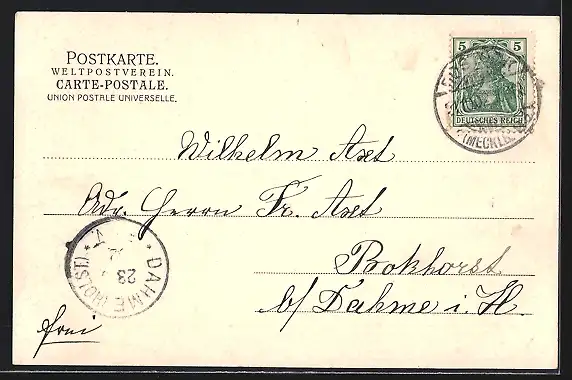 POSTKARTE.
WELTPOSTVEREIN.
CARTE-POSTALE.
UNION POSTALE UNIVERSELLE.
5 5
DEUTSCHES REICH
(MECKLB
Wilhelm Axt
Adr. Herrn Fr. Axt
Bokhorst
b/ Dahme i. H.
DAHME (HOLST.)
23
frei